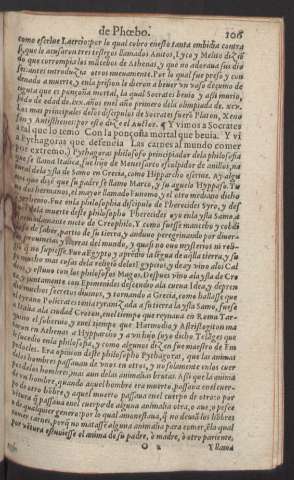 de Phœbo. 106
como escriue Laercio: por lo qual cobro enesto tanta embidia contra
si, que le acusaron tres testigos llamados Anitos, Lyco y Melito diziẽ
do que corrompia los mãcebos de Athenas, y que no adoraua sus dio
ses: antes introduzia otros nueuamente. Por lo qual fue preso y con
denado a muerte, y enla prision le dieron a beuer vn vaso de çumo de
cicuta que es ponçoña mortal, la qual Socrates beuio y assi murio,
siẽdo de edad de .lxx. años enel año primero dela olimpiada de .xcv.
Los mas principales delos discipulos de Socrates fuerõ Platon, Xeno
fon y Antisthenes: por esso dize el auctor. ¶ Y vimos a Socrates
a tal que lo temo Con la ponçoña mortal que beuia. Y vi
a Pythagoras que defendia Las carnes al mundo comer
por extremo.) Pythagoras philosopho principiador dela philosophia
que se llama Italica, fue hijo de Menesarco esculpidor de anillos, na
tural dela ysla de Samo en Grecia, como Hipparcho escriue. Ay algu
nos que dizẽ que su padre se llamo Marco, y su aguelo Hyppaso. Tu
uo dos hermanos, el mayor llamado Eunomo, y el otro mediano dicho
Tyrrheno. Fue enla philosophia discipulo de Pherecides Syro, y des
pues dela muerte deste philosopho Pherecides oyo enla ysla Samo, a
Hermodamante nieto de Creophylo. Y como fuesse mancebo y cobdi
cioso de saber, partio de su tierra, y anduuo peregrinando por diuer
sas prouincias y tierras del mundo, y quasi no ouo mysterios ni reli
giõ q̃ no supiesse. Fue a Egypto y aprẽdio la lẽgua de aq̃lla tierra, y su
po mucho mas cosas dela religiõ delos Egyptios, y de ay vino alos Cal
deos, y estuuo con los philosofos Magos. Despues vino ala ysla de Cre
ta, y juntamente con Epimenides descendio ala cueua Idea, y depren
dio muchos secretos diuinos, y tornando a Grecia, como hallasse que
el tyrano Policrates tenia tyranizada a su tierra la ysla Samo, fuesse
a Italia ala ciudad Croton, enel tiempo que reynaua en Roma Tar-
quino el soberuio, y enel tiempo que Harmodio y Aristogiton ma
taron en Athenas a Hypparcho y a vn hijo suyo dicho Telages que
le sucedio enla philosophia, y como algunos dizen fue maestro de Em
pedocles. Era opinion deste philosopho Pythagoras, que las animas
delos hombres passauan de vnos en otros, y no solamente enlos cuer
pos delos hombres, mas aun delas animalias brutas. Assi que la anima
de vn hombre, quando aquel hombre era muerto, passaua enel cuer-
po de otro hõbre, y aquel muerto passaua enel cuerpo de otro: o por
ventura q̃ passaua enel cuerpo de alguna animalia otra, o aue, o pesce
de qualquier genero: por lo qual amonestaua, q̃ no deuiã los hõbres
comer carne, porq̃ no matassẽ alguna animalia para comer, ẽla qual
por vẽtura estuuiesse el anima de su padre, o madre, o otro pariente,
O 2 Y llama